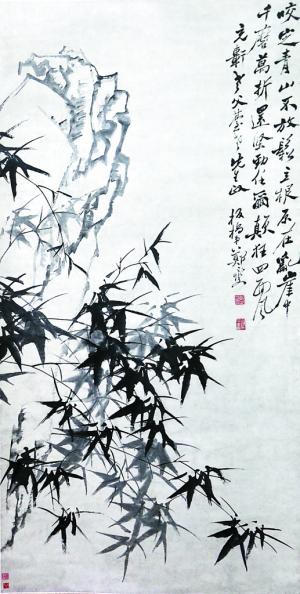 咬定青山不放鬆立根原在亂崖中
千磨萬折還堅勁任爾顛狂四面風
老父臺先生政
板橋鄭燮